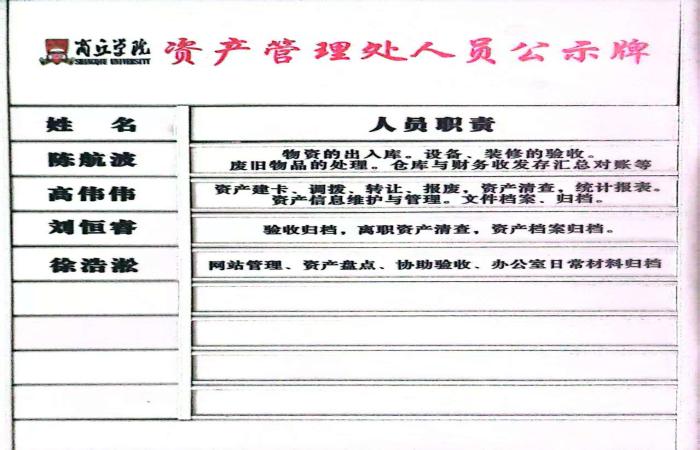 商丘学院 资产管理处人员公示牌
SHANGQIU UNIVERSITY
姓 名 人员职责
陈航波 物资的出入库。设备、装修的验收。
废旧物品的处理。仓库与财务收发存汇总对账等
高伟伟 资产建卡、调拨、转让、报废，资产清查，统计报表。
资产信息维护与管理。文件档案、归档。
刘恒睿 验收归档，离职资产清查，资产档案归档。
徐浩淞 网站管理、资产盘点、协助验收、办公室日常材料归档